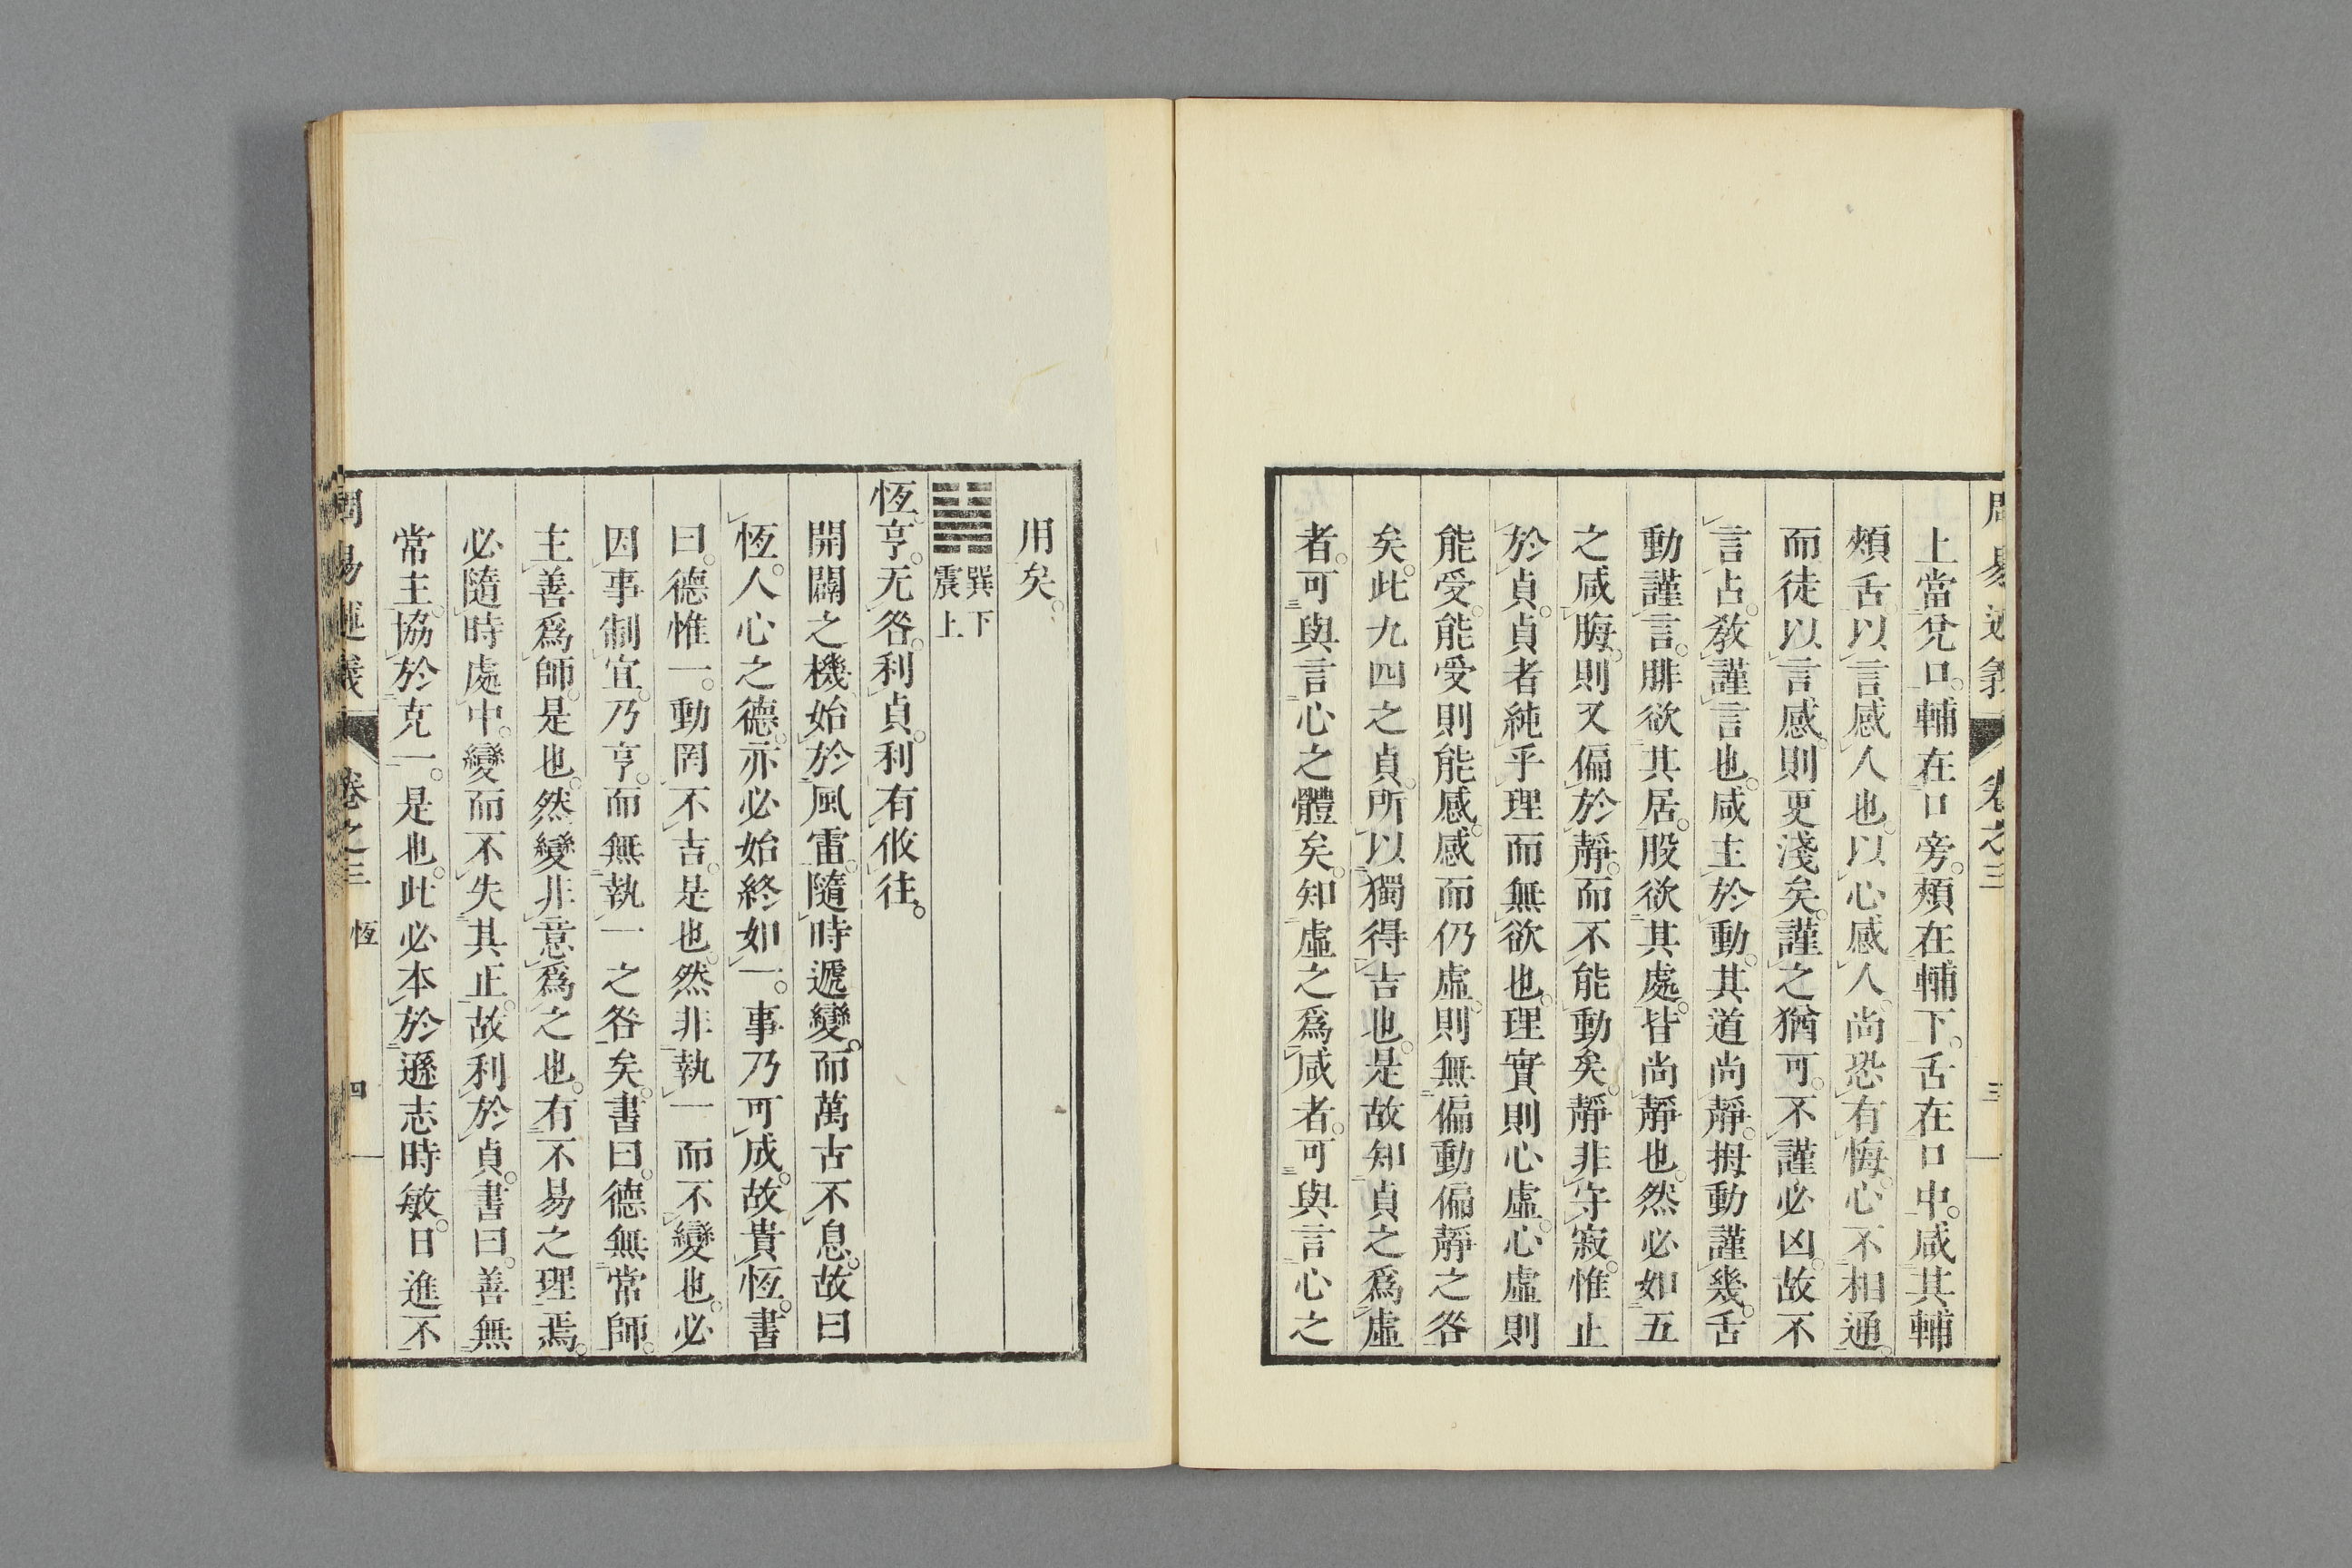 周易述義 卷之三 三
上當兌口。輔在口旁。頰在輔下。舌在口中。咸其輔
頰舌。以言感人也。以心感人。尚恐有悔。心不相通。
而徒以言感。則更淺矣。謹之猶可。不謹必凶。故不
言占。敎謹言也。咸主於動。其道尚靜。拇動謹幾。舌
動謹言。腓欲其居。股欲其處。皆尚靜也。然必如五
之咸脢。則又偏於靜。而不能動矣。靜非守寂。惟止
於貞。貞者純乎理而無欲也。理實則心虛。心虛則
能受。能受則能感。感而仍虛。則無偏動偏靜之咎
矣。此九四之貞。所以獨得吉也。是故知貞之爲虛
者。可與言心之體矣。知虛之爲咸者。可與言心之
用矣。
䷟ 巽下
震上
恆。亨。无咎。利貞。利有攸往。
開闢之機。始於風雷。隨時遞變。而萬古不息。故曰
恆。人心之德。亦必始終如一。事乃可成。故貴恆。書
曰。德惟一。動罔不吉。是也。然非執一而不變也。必
因事制宜。乃亨。而無執一之咎矣。書曰。德無常師。
主善爲師。是也。然變非意爲之也。有不易之理焉。
必隨時處中。變而不失其正。故利於貞。書曰。善無
常主。協於克一。是也。此必本於遜志時敏。日進不
周易述義 卷之三 恆 四